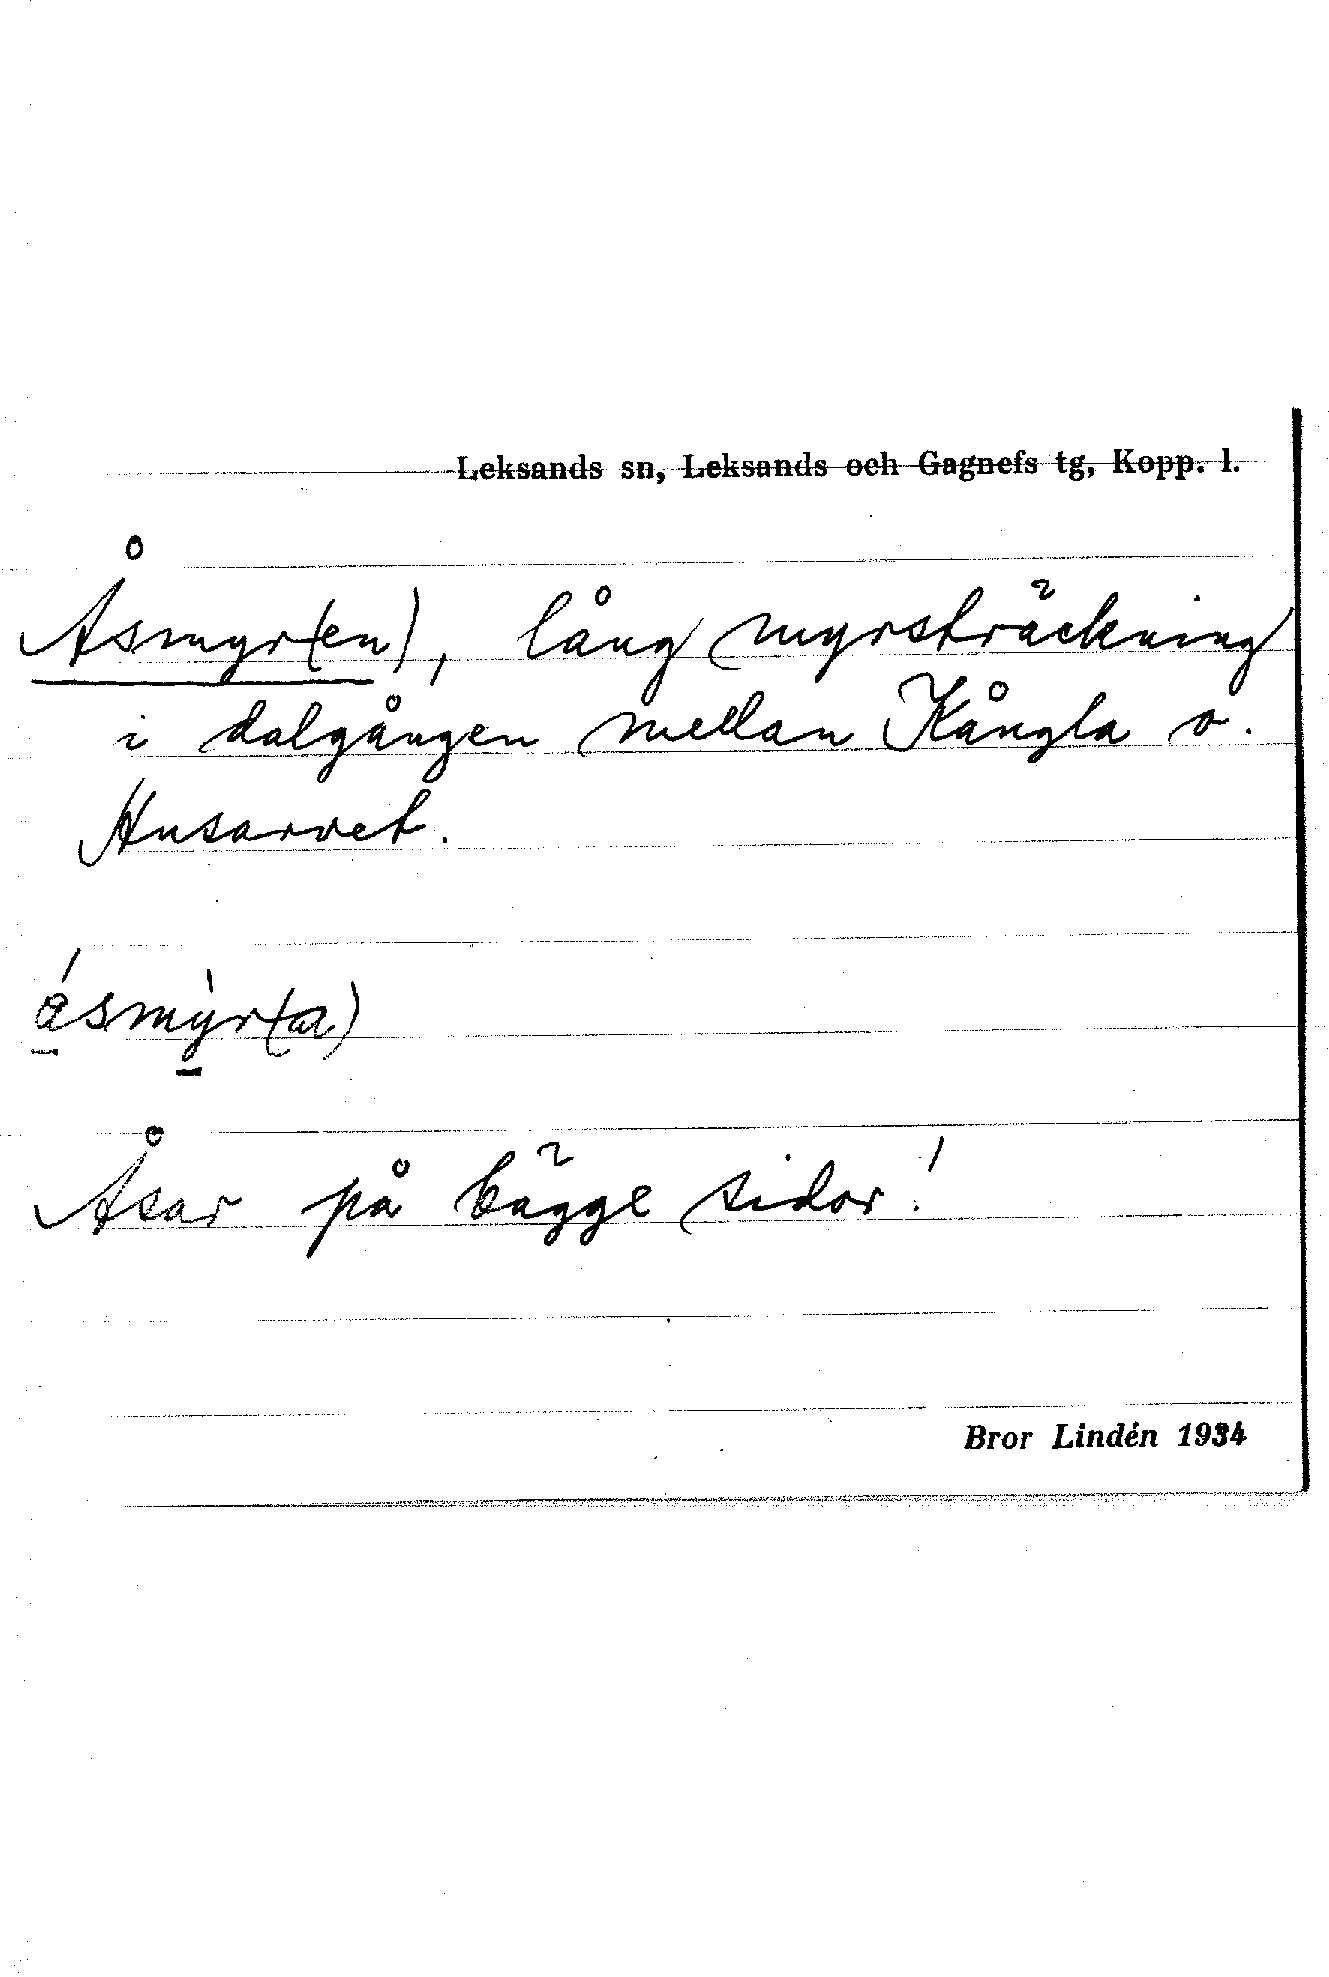 Leksands sn, Leksands och Gagnefs tg, Kopp. l.
Åsmyr(en), lång myrsträckning
i dalgången mellan Kångla o.
Husarvet.
åsmy̍r(a)
Åsar på bägge sidor!
Bror Lindén 1934